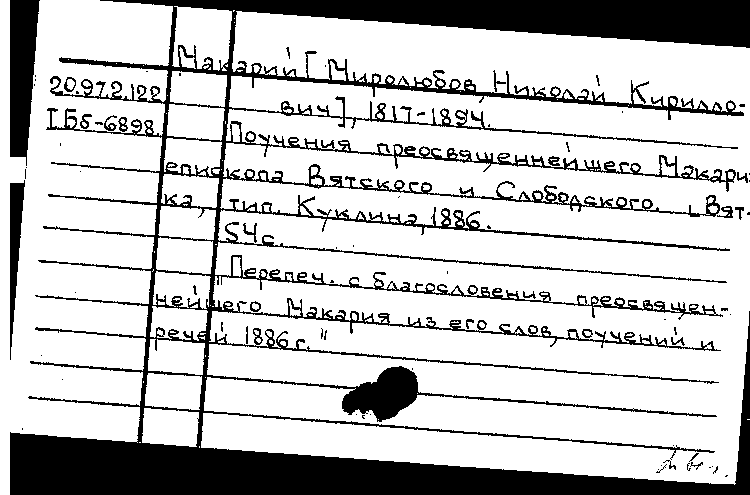 Макарий [ Миролюбов, Николай Кирилло-
20.972.122
вич], 1817-1894.
I Бб-6898.
Поучения преосвященнейшего Макари
епископа Вятского и Слободского. [Вят-
ка, тип. Куклина, 1886.
54с.
"Перепеч. с благословения преосвящен-
нейшего Макария из его слов, поучений и
речей 1886 г."